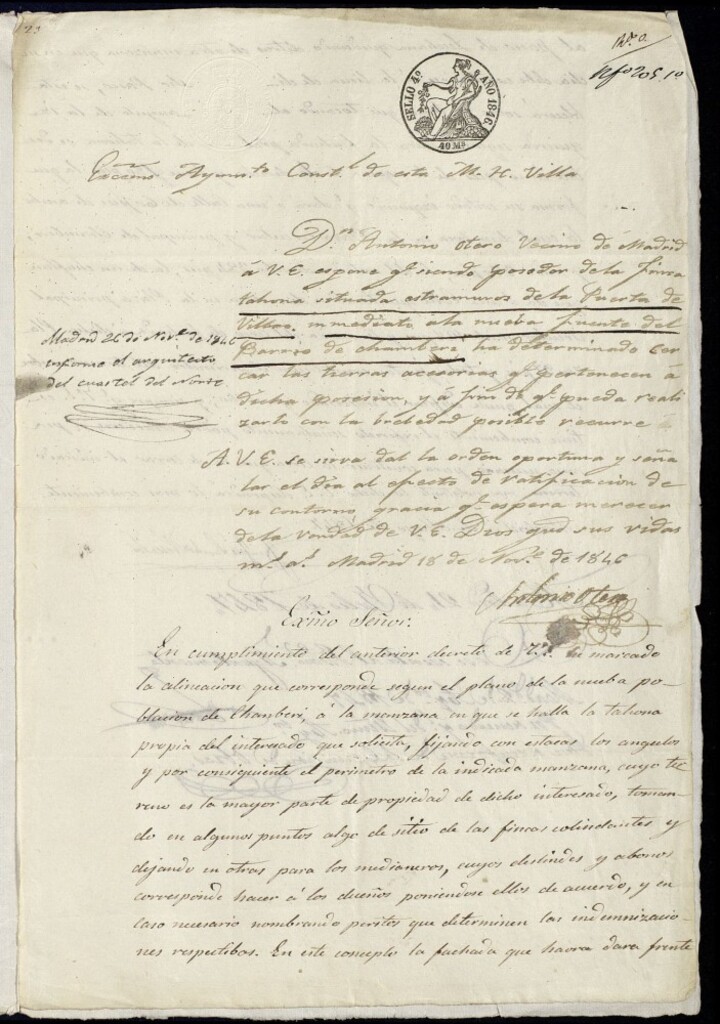 23
SELLO 4º AÑO 1846
40 Ms
Rdo.
Nº 205.10
Excmo Ayunto. Constl. de esta M. H. Villa
Dn. Antonio Otero Vecino de Madrid
á V.E. espone qe. siendo posedor de la finca
tahona situada estramuros de la Puerta de
Vilbao, inmediato ala nueba fuente del
Barrio de chamberi ha determinado cer
car las tierras acesorias qe. pertenecen á
dicha posesion, y á fin de qe. pueda reali
zarlo con la brebedad posible recurre
A. V. E. se sirva dal la orden oportuna y seña
lar el dia al efecto de ratificacion de
su contorno, gracia qe. espera merecer
dela vondad de V.E. Dios gud sus vidas
ms. as. Madrid 18 de Nove. de 1846
Antonio Otero
Madrid 26 de Nove. de 1846
informe el arquitecto
del cuartel del Norte
Exmo Señor.
En cumplimiento del anterior decreto de V.E. he marcado
la alineacion que corresponde segun el plano de la nueba po-
blacion de Chamberi, á la manzana en que se halla la tahona
propia del interesado que solicita, fijando con estacas los angulos
y por consiguiente el perimetro de la indicada manzana, cuyo ter
reno es la mayor parte de propiedad de dicho interesado, toman-
do en algunos puntos algo de sitio de las fincas colindantes y
dejando en otras para los medianeros, cuyos deslindes y abonos
corresponde hacer á los dueños poniendose ellos de acuerdo, y en
caso necesario nombrando peritos que determinen las indemnizacio-
nes respectibas. En este concepto la fachada que haora dara frente